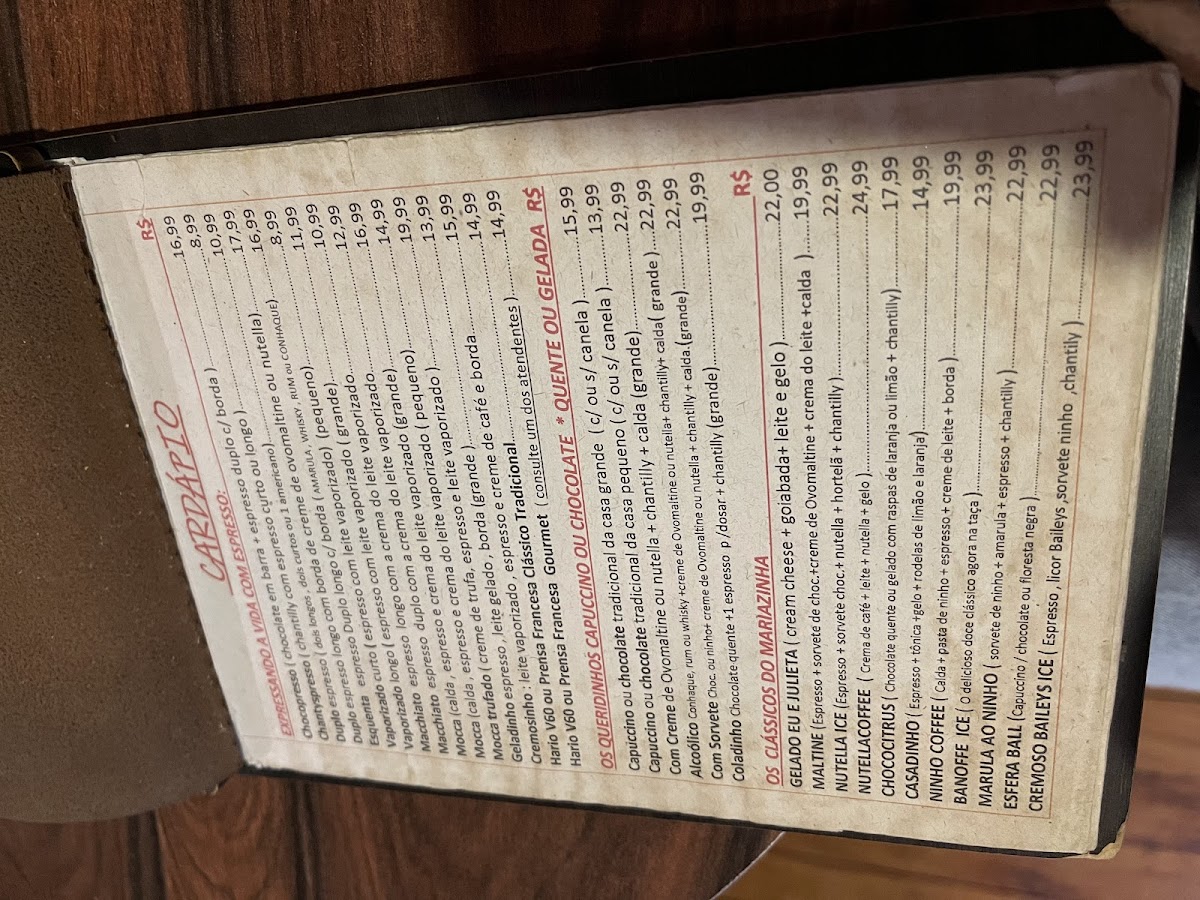 CARDÁPIO
EXPRESSANDO A VIDA COM ESPRESSO: R$
Chocopresso ( chocolate em barra + espresso duplo c/ borda ) 16,99
Chantyspresso ( chantilly com espresso curto ou longo ) 8,99
Duplo espresso ( dois longos , dois curtos ou 1 americano) 10,99
Duplo espresso longo com borda de creme de ovomaltine ou nutella) 17,99
Esquenta espresso longo c/ borda ( AMARULA, WHISKY, RUM ou CONHAQUE) 16,99
Vaporizado curto ( espresso com leite vaporizado) (pequeno) 8,99
Vaporizado longo ( espresso com leite vaporizado ( grande) 11,99
Macchiato espresso longo com a crema do leite vaporizado 10,99
Macchiato espresso duplo com a crema do leite vaporizado 12,99
Mocca (calda , espresso e crema do leite vaporizado (grande) 16,99
Mocca (calda , espresso e crema do leite vaporizado ( pequeno) 14,99
Mocca trufado ( creme de trufa, espresso e leite vaporizado ) 19,99
Geladinho espresso , leite gelado , borda (grande ) 13,99
Cremosinho : leite vaporizado , espresso e creme de café e borda 15,99
Hario V60 ou Prensa Francesa Clássico Tradicional 14,99
Hario V60 ou Prensa Francesa Gourmet ( consulte um dos atendentes ) 14,99
OS QUERIDINHOS CAPUCCINO OU CHOCOLATE * QUENTE OU GELADA R$
Capuccino ou chocolate tradicional da casa grande ( c/ ou s/ canela ) 15,99
Capuccino ou chocolate tradicional da casa pequeno ( c/ ou s/ canela ) 13,99
Com Creme de Ovomaltine ou nutella + chantilly + calda (grande) 22,99
Alcoólico Conhaque, rum ou whisky +creme de Ovomaltine ou nutella+ chantilly+ calda( grande ) 22,99
Com Sorvete Choc. ou ninho+ creme de Ovomaltine ou nutella + chantilly + calda.(grande) 22,99
Coladinho Chocolate quente +1 espresso p /dosar + chantilly (grande) 19,99
OS CLÁSSICOS DO MARIAZINHA R$
GELADO EU E JULIETA ( cream cheese + goiabada+ leite e gelo ) 22,00
MALTINE (Espresso + sorvete de choc.+creme de Ovomaltine + crema do leite +calda ) 19,99
NUTELLA ICE (Espresso + sorvete choc.+ nutella + hortelã + chantilly ) 22,99
NUTELLACOFFEE ( Crema de café + leite + nutella + gelo ) 24,99
CHOCOCITRUS ( Chocolate quente ou gelado com raspas de laranja ou limão + chantilly) 17,99
CASADINHO ( Espresso + tônica +gelo + rodelas de limão e laranja) 14,99
NINHO COFFEE ( Calda + pasta de ninho + espresso + creme de leite + borda ) 19,99
BANOFFE ICE ( O delicioso doce clássico agora na taça ) 23,99
MARULA AO NINHO ( sorvete de ninho + amarula + espresso + chantilly ) 22,99
ESFERA BALL (Capuccino / chocolate ou floresta negra ) 22,99
CREMOSO BAILEYS ICE ( Espresso , licor Baileys ,sorvete ninho ,chantily ) 23,99